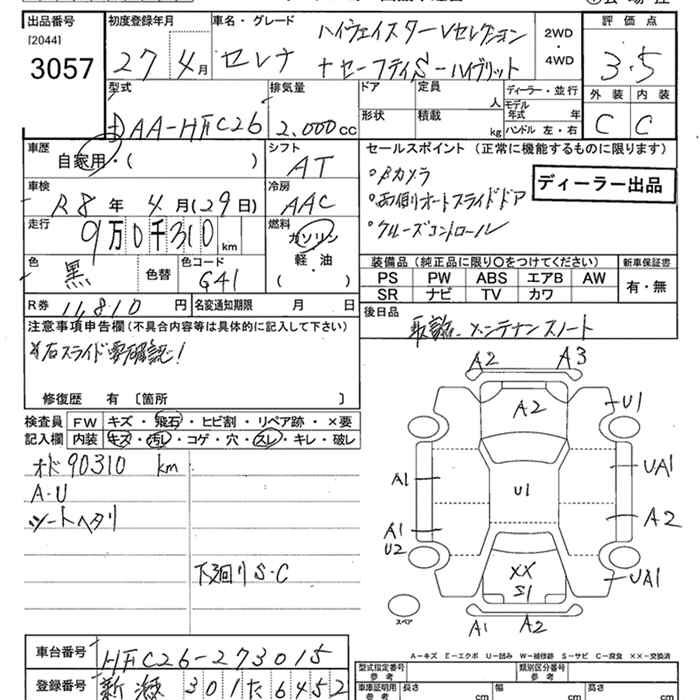 出品番号 初度登録年月 車名・グレード 評価点
[2044]
3057
27年4月 セレナ ハイウェイスターVセレクション
+セーフティS-ハイブリット
2WD
・
4WD
3.5
型式 排気量 ドア 定員 ディーラー・並行 外装 内装
人 モデル年式 年式 年
DAA-HFC26 2.000cc 形状 積載 kg ハンドル 左・右 C C
車歴 シフト セールスポイント (正常に機能するものに限ります)
自家用・( ) AT
・Bカメラ
・両側オートスライドドア
・クルーズコントロール
ディーラー出品
車検 冷房
R8年4月(29日) AAC
走行 燃料
9万0千310km ガソリン
軽・油
( )
色 色替 色コード
黒 G41
装備品 (純正品に限り○をつけてください) 新車保証書
PS PW ABS エアB AW 有・無
SR ナビ TV カワ
R券 11,810円 名変通知期限 月 日
後日品
取説、メンテナンスノート
注意事項申告欄(不具合内容等は具体的に記入して下さい)
右スライド要確認!
修復歴 有 〔箇所 〕
検査員 FW キズ・飛石・ヒビ割・リペア跡・×要
記入欄 内装 キズ・汚レ・コゲ・穴・スレ・キレ・破レ
オド90310 km
A・U
シートヘタリ
下廻りS・C
A2 A3
A2 U1
A1 U1 UA1
A1 A2
U2
XX UA1
S1
スペア
A1 A2
A-キズ E-エクボ U-凹み W-補修跡 S-サビ C-腐食 XX-交換済
車台番号 HFC26-273015
型式指定番号 参考 類別区分番号 参考
登録番号 301た6452
車庫証明用 参考 長さ cm 幅 cm 高さ cm